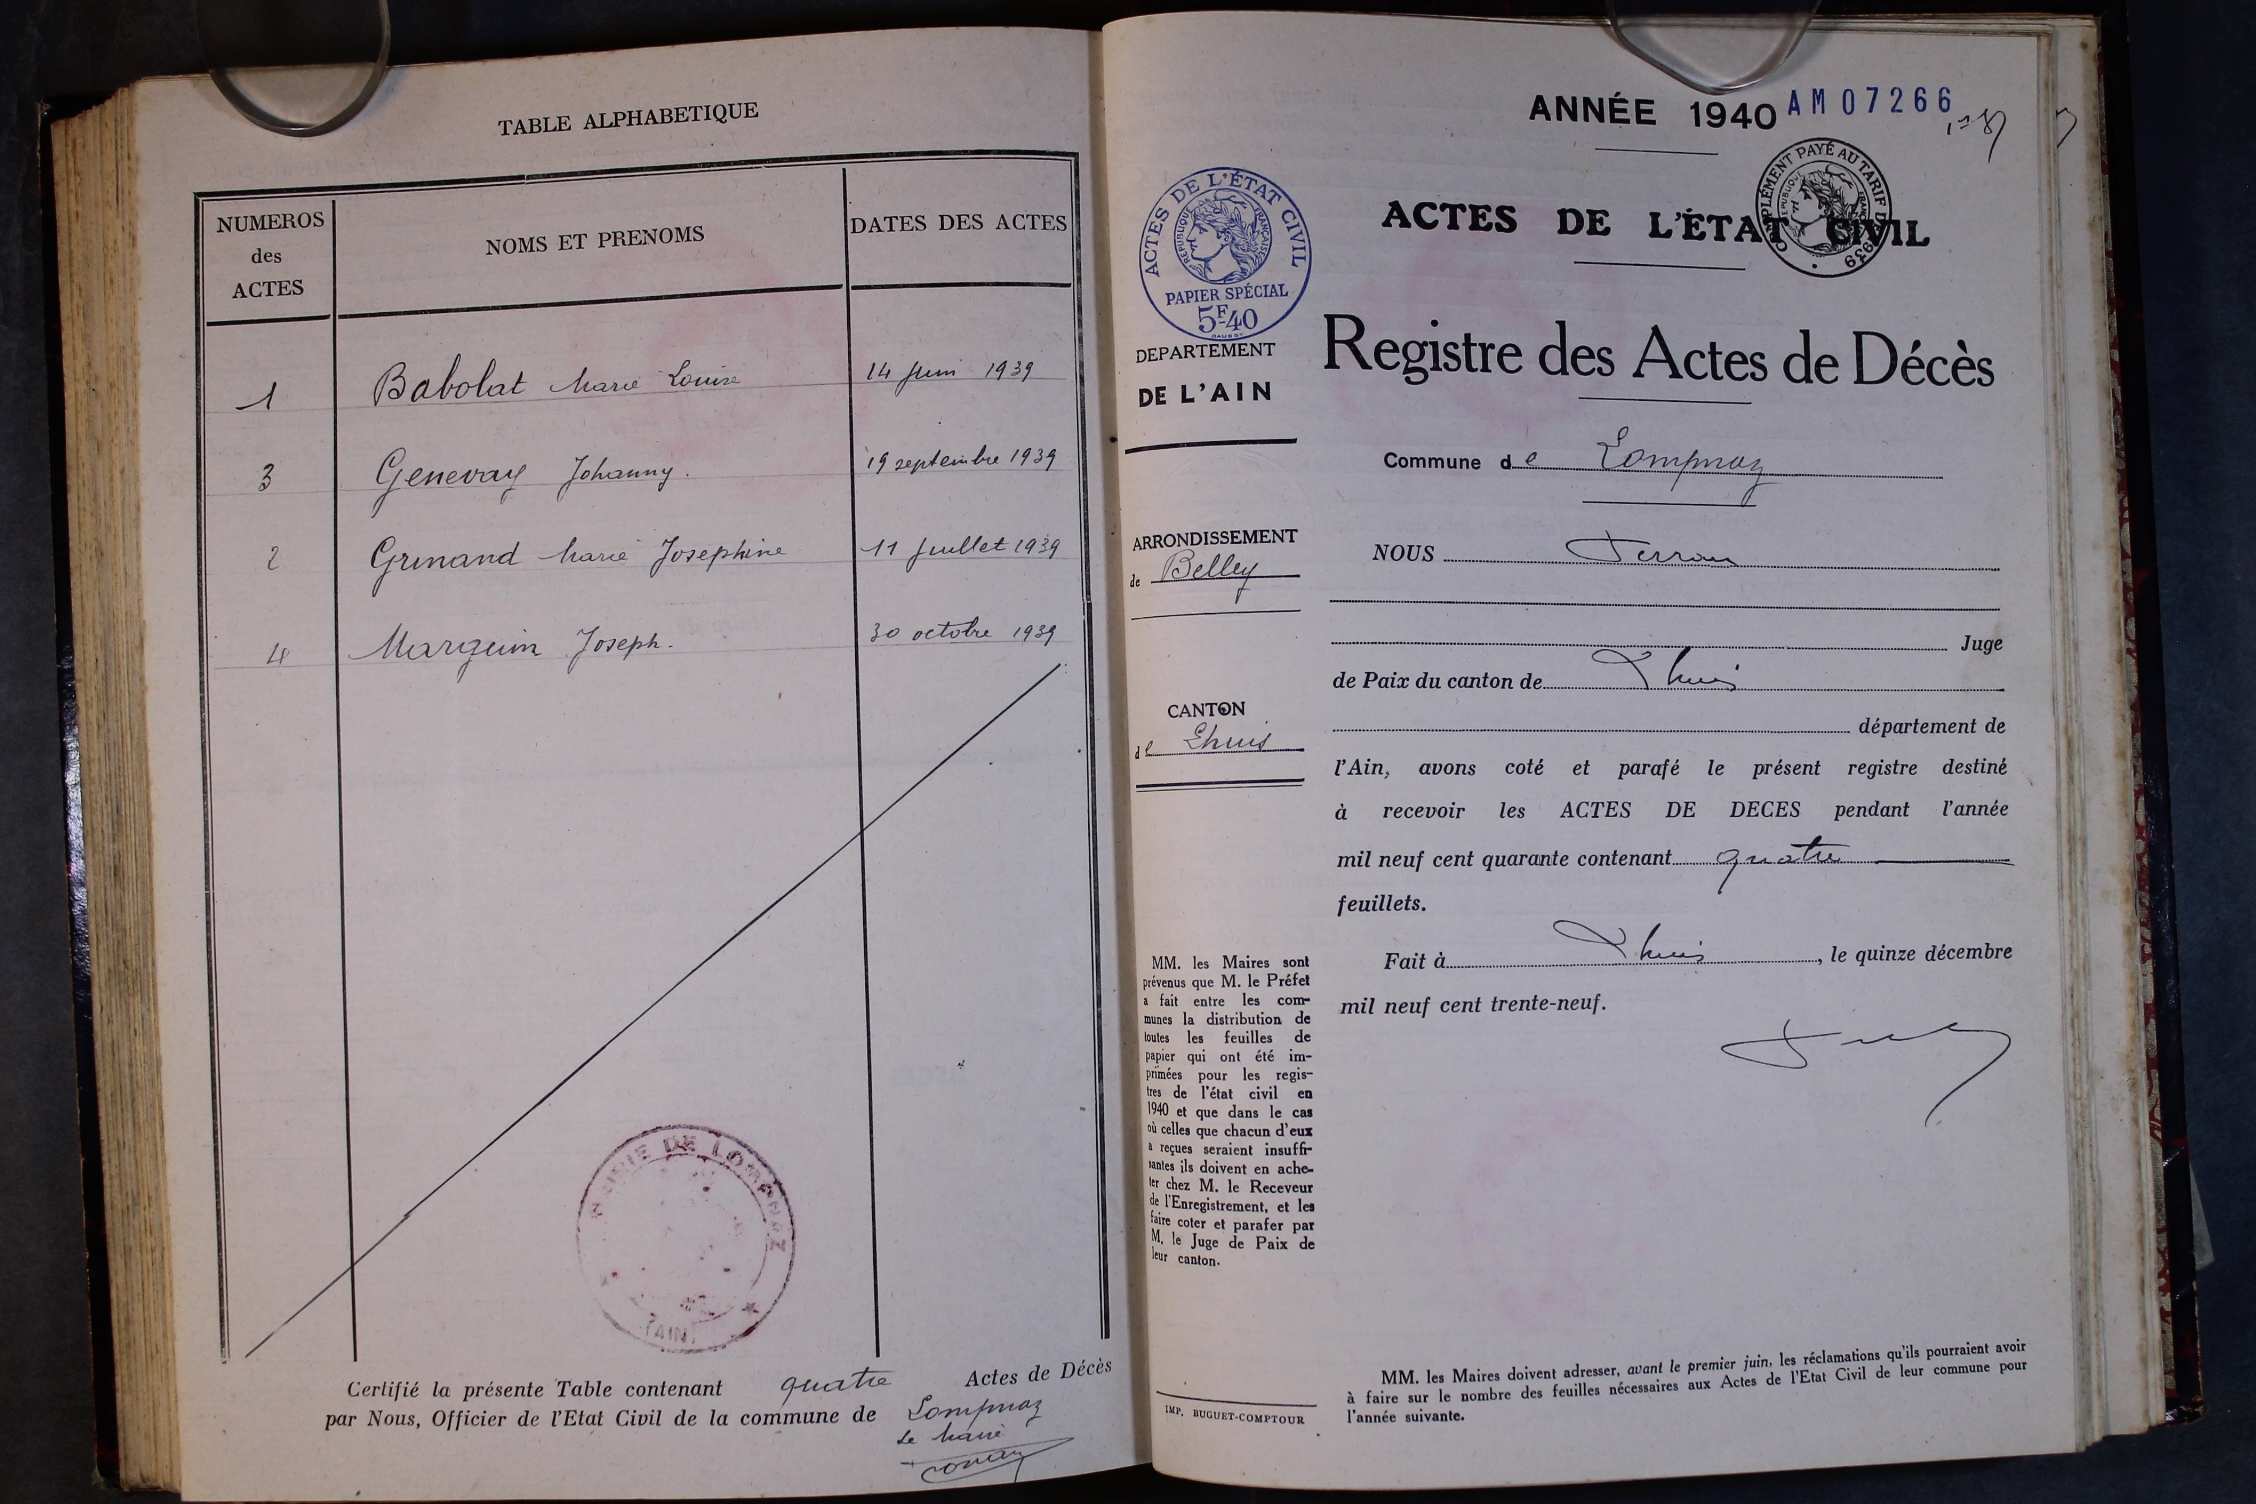 TABLE ALPHABETIQUE
NUMEROS
des
ACTES
NOMS ET PRENOMS
DATES DES ACTES
1 Babolat Marie Louise 14 Juin 1939
3 Genevay Johanny. 19 septembre 1939
2 Grinand Marie Josephine 11 Juillet 1939
4 Marguin Joseph. 30 octobre 1939
MAIRIE DE LOMPNAZ
(AIN)
Certifié la présente Table contenant quatre Actes de Décès
par Nous, Officier de l'Etat Civil de la commune de Lompnaz
Le Maire
ANNÉE 1940
AM 07266
COMPLÉMENT PAYÉ AU TARIF DE 1939
RÉPUBLIQUE FRANÇAISE
ACTES DE L'ÉTAT CIVIL
RÉPUBLIQUE FRANÇAISE
PAPIER SPÉCIAL
5F40
ACTES DE L'ÉTAT CIVIL
Registre des Actes de Décès
DEPARTEMENT
DE L'AIN
Commune de Lompnaz
ARRONDISSEMENT
de Belley
CANTON
de Lhuis
NOUS
Juge
de Paix du canton de Lhuis
département de
l'Ain, avons coté et parafé le présent registre destiné
à recevoir les ACTES DE DECES pendant l'année
mil neuf cent quarante contenant quatre
feuillets.
Fait à Lhuis, le quinze décembre
mil neuf cent trente-neuf.
MM. les Maires sont
prévenus que M. le Préfet
a fait entre les com-
munes la distribution de
toutes les feuilles de
papier qui ont été im-
primées pour les regis-
tres de l'état civil en
1940 et que dans le cas
où celles que chacun d'eux
a reçues seraient insuffi-
santes ils doivent en ache-
ter chez M. le Receveur
de l'Enregistrement, et les
faire coter et parafer par
M. le Juge de Paix de
leur canton.
IMP. BUGUET-COMPTOUR
MM. les Maires doivent adresser, avant le premier juin, les réclamations qu'ils pourraient avoir
à faire sur le nombre des feuilles nécessaires aux Actes de l'Etat Civil de leur commune pour
l'année suivante.